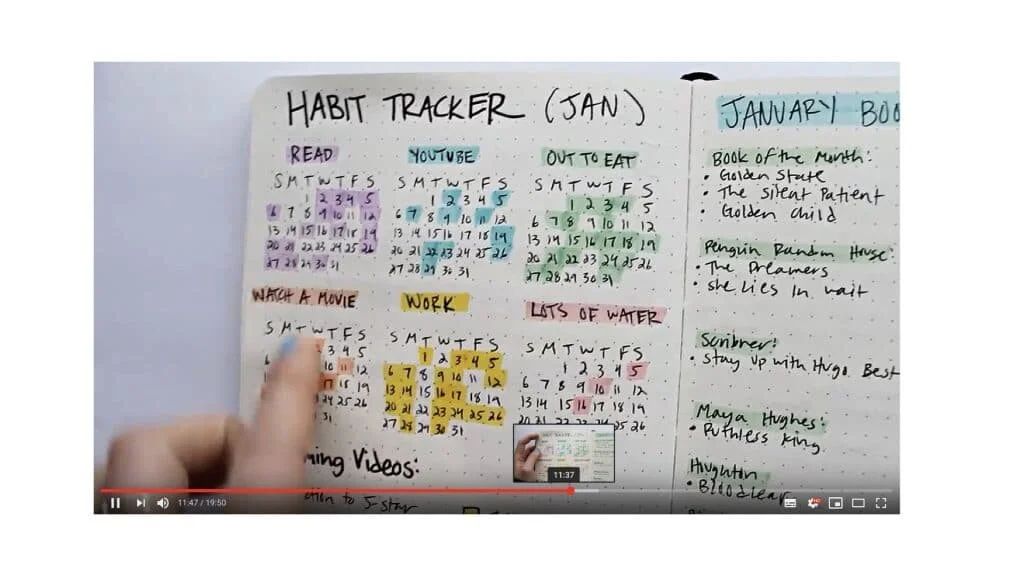 HABIT TRACKER (JAN)
READ
S M T W T F S
1 2 3 4 5
6 7 8 9 10 11 12
13 14 15 16 17 18 19
20 21 22 23 24 25 26
27 28 29 30 31
YOUTUBE
S M T W T F S
1 2 3 4 5
6 7 8 9 10 11 12
13 14 15 16 17 18 19
20 21 22 23 24 25 26
27 28 29 30 31
OUT TO EAT
S M T W T F S
1 2 3 4 5
6 7 8 9 10 11 12
13 14 15 16 17 18 19
20 21 22 23 24 25 26
27 28 29 30 31
WATCH A MOVIE
S M T W T F S
3 4 5
10 11 12
17 18 19
24 25 26
31
WORK
S M T W T F S
1 2 3 4 5
6 7 8 9 10 11 12
13 14 15 16 17 18 19
20 21 22 23 24 25 26
27 28 29 30 31
LOTS OF WATER
S M T W T F S
1 2 3 4 5
6 7 8 9 10 11 12
13 14 15 16 17 18 19
26
Videos:
to 5-star
JANUARY
Book of the Month:
• Golden State
• The Silent Patient
• Golden Child
Penguin Random House:
• The Dreamers
• She Lies In Wait
Scribner:
• Stay Up with Hugo Best
Maya Hughes:
• Ruthless King
Houghton
HABIT TRACKER (JAN)
11:37
11:47 / 19:50